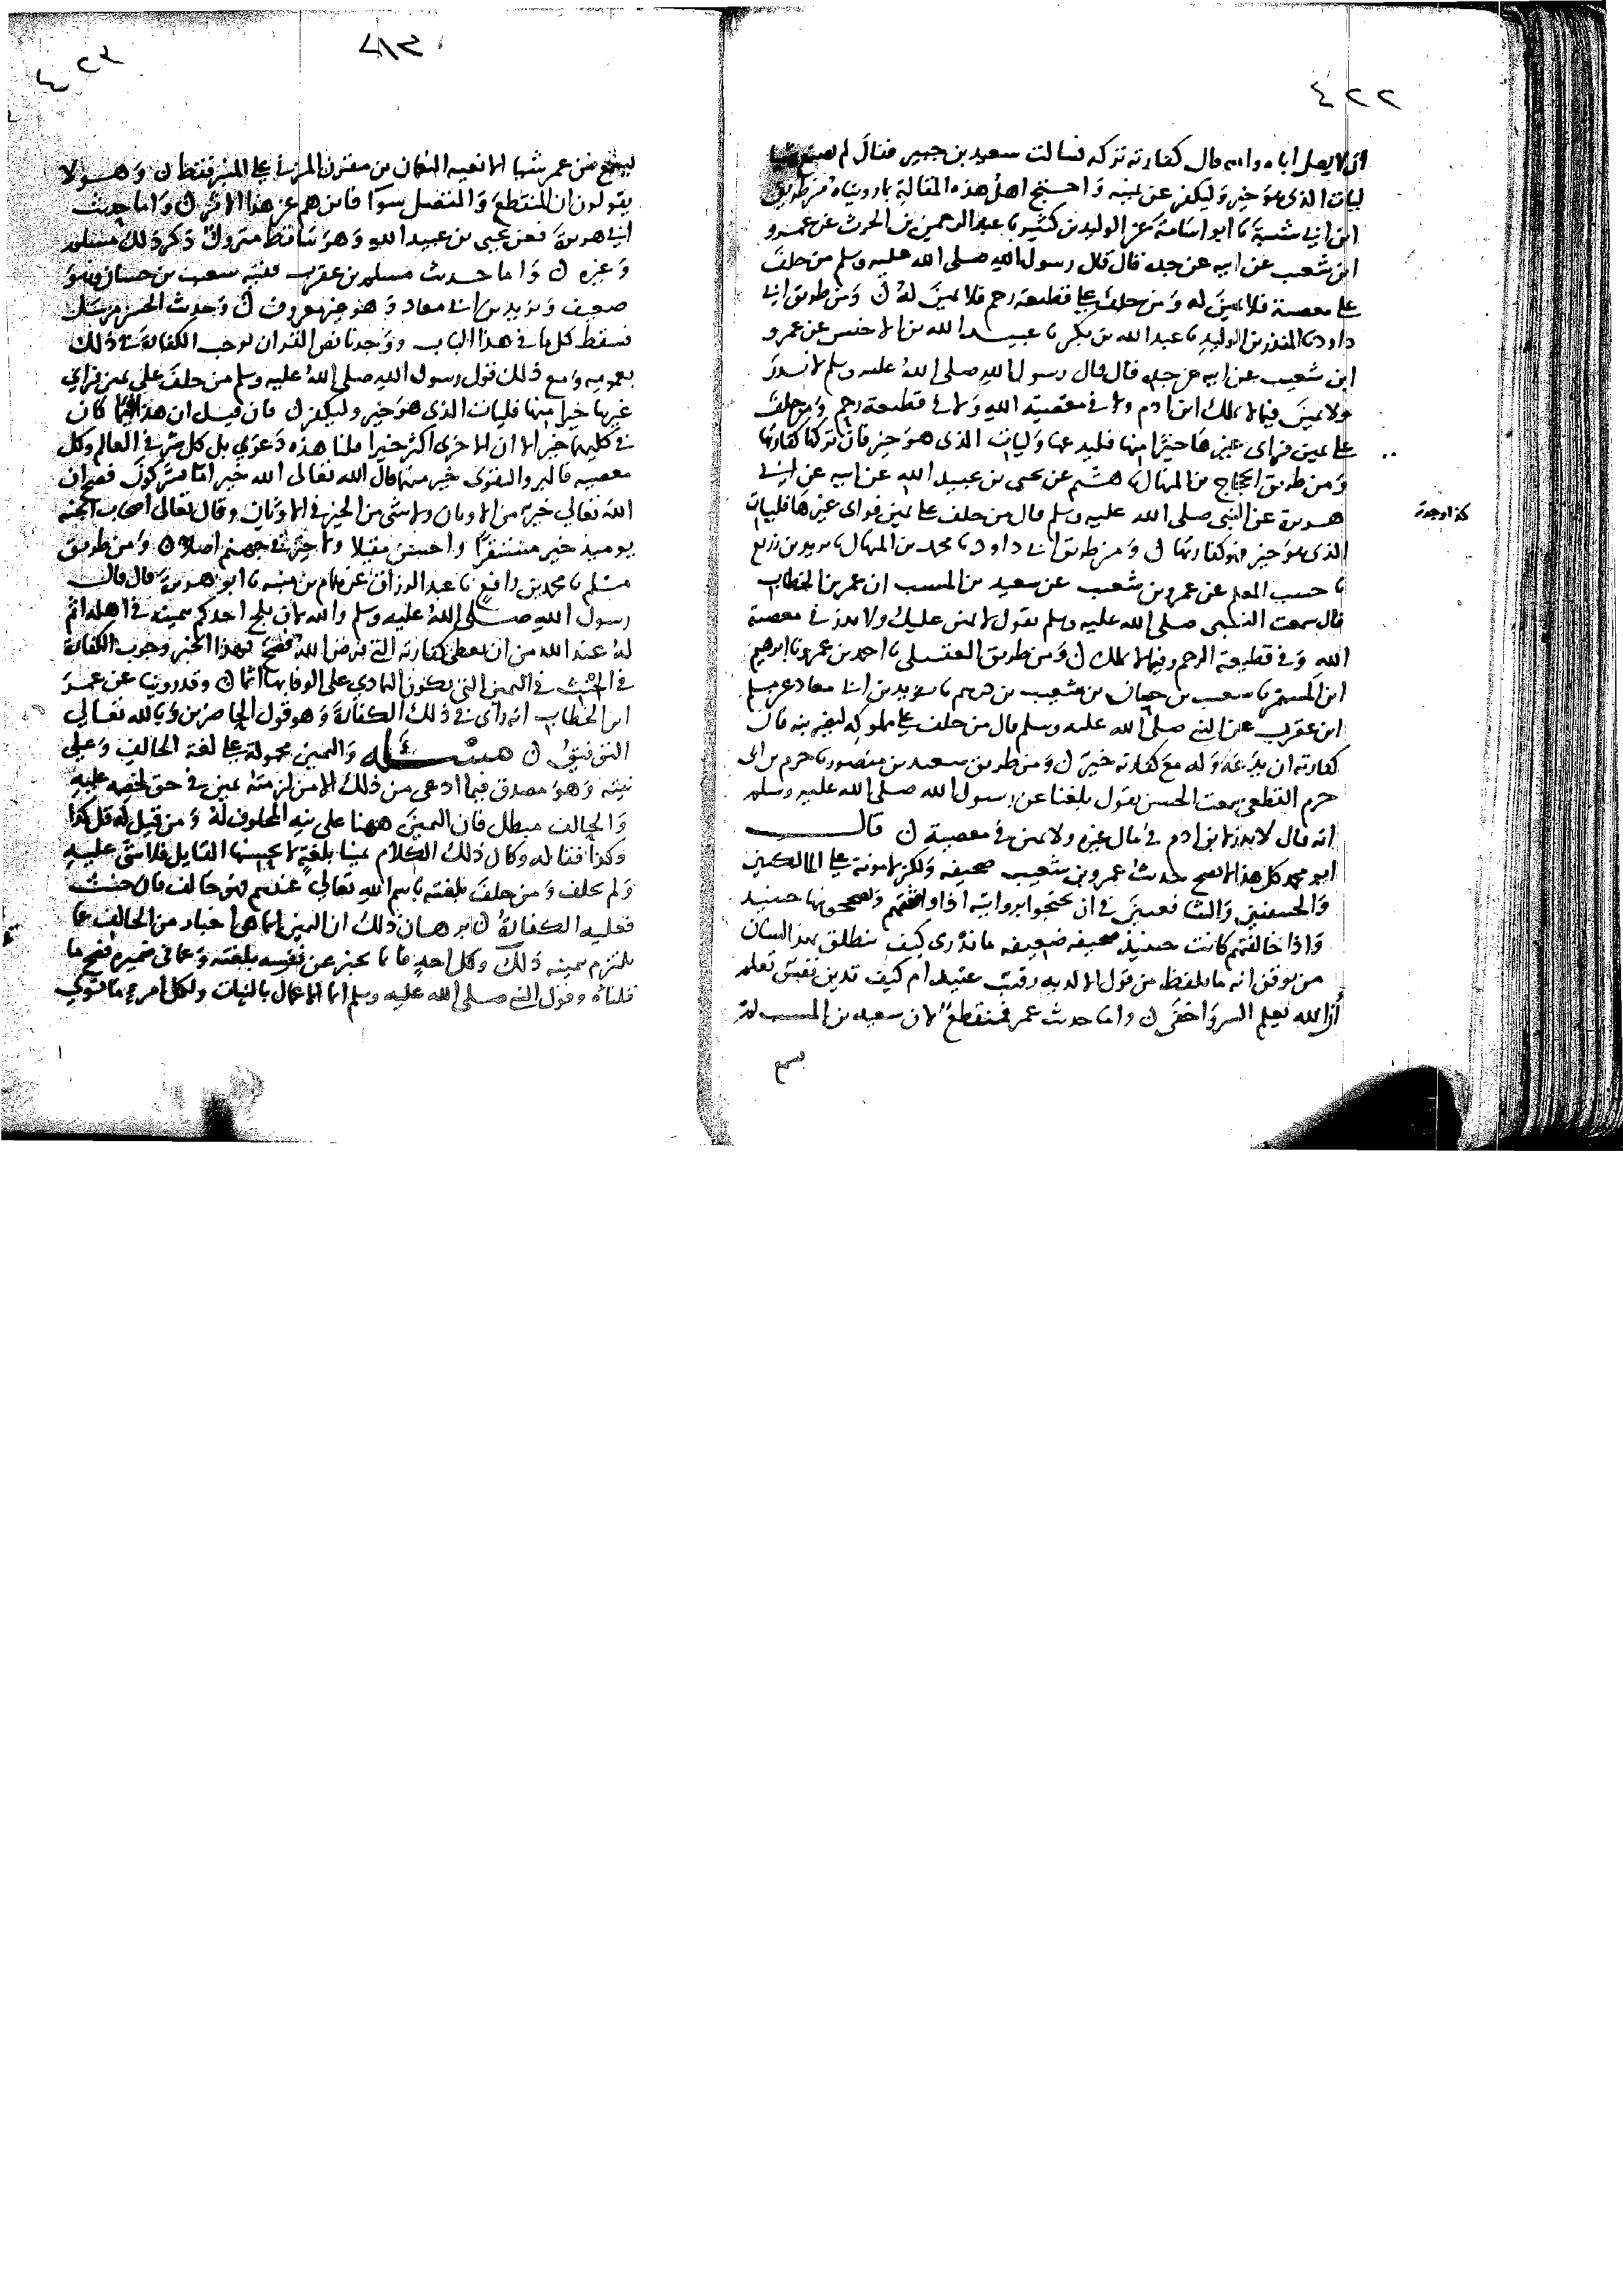 ٤٢٢
ان لا يصل اباه وامه قال كفارته تركه فسالت سعيد بن جبير فقال لم يصنع شيا
ليات الذى هو خير وليكفر عن يمينه واحتج اهل هذه المقالة بما رويناه من طريق
ابن ابي شيبة نا ابو اسامة عن الوليد بن كثير نا عبد الرحمن بن الحرث عن عمرو
ابن شعيب عن ابيه عن جده قال قال رسول الله صلى الله عليه وسلم من حلف
على معصية فلا يمين له ومن حلف على قطيعة رحم فلا يمين له ن ومن طريق ابي
داود نا المنذر بن الوليد نا عبد الله بن بكر نا عبيد الله بن الاخنس عن عمرو
ابن شعيب عن ابيه عن جده قال قال رسول الله صلى الله عليه وسلم لا نذر
ولا يمين فيما لا يملك ابن ادم ولا في معصية الله ولا في قطيعة رحم ومن حلف
على يمين فراى غيرها خيرا منها فليدعها وليات الذى هو خير فان تركها كفارتها
ومن طريق الحجاج بن المنهال نا هشيم عن يحيى بن عبيد الله عن ابيه عن ابي
هريرة عن النبي صلى الله عليه وسلم قال من حلف على يمين فراى غيرها فليات
كذا وجدته
الذى هو خير فهو كفارتها ن ومن طريق ابي داود نا محمد بن المنهال نا يزيد بن زريع
نا حبيب المعلم عن عمرو بن شعيب عن سعيد بن المسيب ان عمر بن الخطاب
قال سمعت النبي صلى الله عليه وسلم يقول لا يمين عليك ولا نذر في معصية
الله وفي قطيعة الرحم وفيما لا يملك ن ومن طريق العقيلي نا احمد بن عمرو نا ابراهيم
ابن المستمر نا شعيب بن حيان بن شعيب بن درهم نا يزيد بن ابي معاذ عن مسلم
ابن عقرب عن النبي صلى الله عليه وسلم قال من حلف على مملوكه ليضربنه فان
كفارته ان يدعه وله مع كفارته خير ن ومن طريق سعيد بن منصور نا حزم بن ابى
حزم القطعي سمعت الحسن يقول بلغنا عن رسول الله صلى الله عليه وسلم
انه قال لا نذر لابن ادم في مال غيره ولا يمين في معصية ن قال
ابو محمد كل هذا لا يصح حديث عمرو بن شعيب صحيفه ولكن لا مونة على المالكيين
والحنفيين والشافعيين في ان يحتجوا بروايته اذا وافقتهم ويصححونها حينيذ
واذا خالفتهم كانت حينيذ صحيفه ضعيفه ما ندرى كيف ينطلق بهذا لسان
من يوقن انه ما يلفظ من قول الا لديه رقيب عتيد ام كيف تدين نفس تعلم
أن الله يعلم السر واخفى ن واما حديث عمر فمنقطع لان سعيد بن المسيب لم
يسمع
٤٢٣
٤١٣
يسمع من عمر شيا الا نعيه النعمان بن مقرن المزني على المنبر فقط ن وهولا
يقولون ان المنقطع والمتصل سوآ فاين هم عن هذا الاثر ن واما حديث
ابي هريرة فعن يحيى بن عبيد الله وهو ساقط متروك ذكر ذلك مسلم
وغيره ن واما حديث مسلم بن عقرب ففيه شعيب بن حيان وهو
ضعيف ويزيد بن ابي معاذ وهو غير معروف ن وحديث الحسن مرسل
فسقط كل ما في هذا الباب ووجدنا نص القران يوجب الكفارة في ذلك
بعمومه ومع ذلك قول رسول الله صلى الله عليه وسلم من حلف على يمين فراي
غيرها خيرا منها فليات الذى هو خير وليكفر ن فان قيل ان هذا فيما كان
في كليهما خير الا ان الاخرى اكثر خيرا قلنا هذه دعوي بل كل شر في العالم وكل
معصيه فالبر والتقوى خير منها قال الله تعالى الله خير اما تشركون فصح ان
الله تعالي خير من الاوثان ولا شى من الخير في الاوثان وقال تعالى أصحاب الجنه
يوميذ خير مستقرا واحسن مقيلا ولا خير في جهنم اصلا ن ومن طريق
مسلم نا محمد بن رافع نا عبد الرزاق عن همام بن منبه نا ابو هريرة قال قال
رسول الله صلى الله عليه وسلم والله لان يلج احدكم بيمينه في اهله اثم
له عند الله من ان يعطي كفارته التي فرض الله فصح بهذا الخبر وجوب الكفارة
في الحنث في اليمين التي يكون التمادي على الوفا بها اثما ن وقد روينا عن عمر
ابن الخطاب انه راى في ذلك الكفارة وهو قول الحاضرين وبالله تعالي
التوفيق ن مسئله واليمين محمولة على لغة الحالف وعلى
نيته وهو مصدق فيما ادعى من ذلك الا من لزمته يمين في حق لخصمه عليه
والحالف مبطل فان اليمين ههنا على نيه المحلوف له ومن قيل له قل كذا
وكذا فقاله وكان ذلك الكلام يمينا بلغة لا يحسنها القايل فلا شى عليه
ولم يحلف ومن حلف بلغته باسم الله تعالي عندهم فهو حالف فان حنث
فعليه الكفارة ن برهان ذلك ان اليمين انما هو اخبار من الحالف عما
يلتزم بيمينه ذلك وكل احد فانما يخبر عن نفسه بلغته وعما في ضميره فصح ما
قلناه وقول النبي صلى الله عليه وسلم انما الاعمال بالنيات ولكل امرء ما نوى